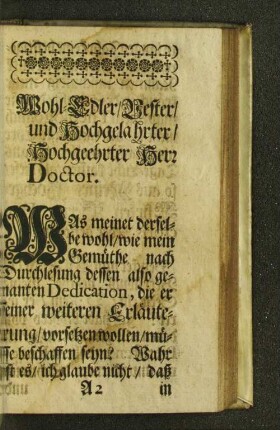 Wohl-Edler/Vester/
und Hochgelahrter/
Hochgeehrter Herr
Doctor.
WAs meinet dersel-
be wohl/wie mein
Gemüthe nach
Durchlesung dessen also ge-
nanten Dedication, die er
seiner weiteren Erläute-
rung/vorsetzen wollen/mü-
sse beschaffen seyn? Wahr
ist es/ich glaube nicht/daß
A2 in